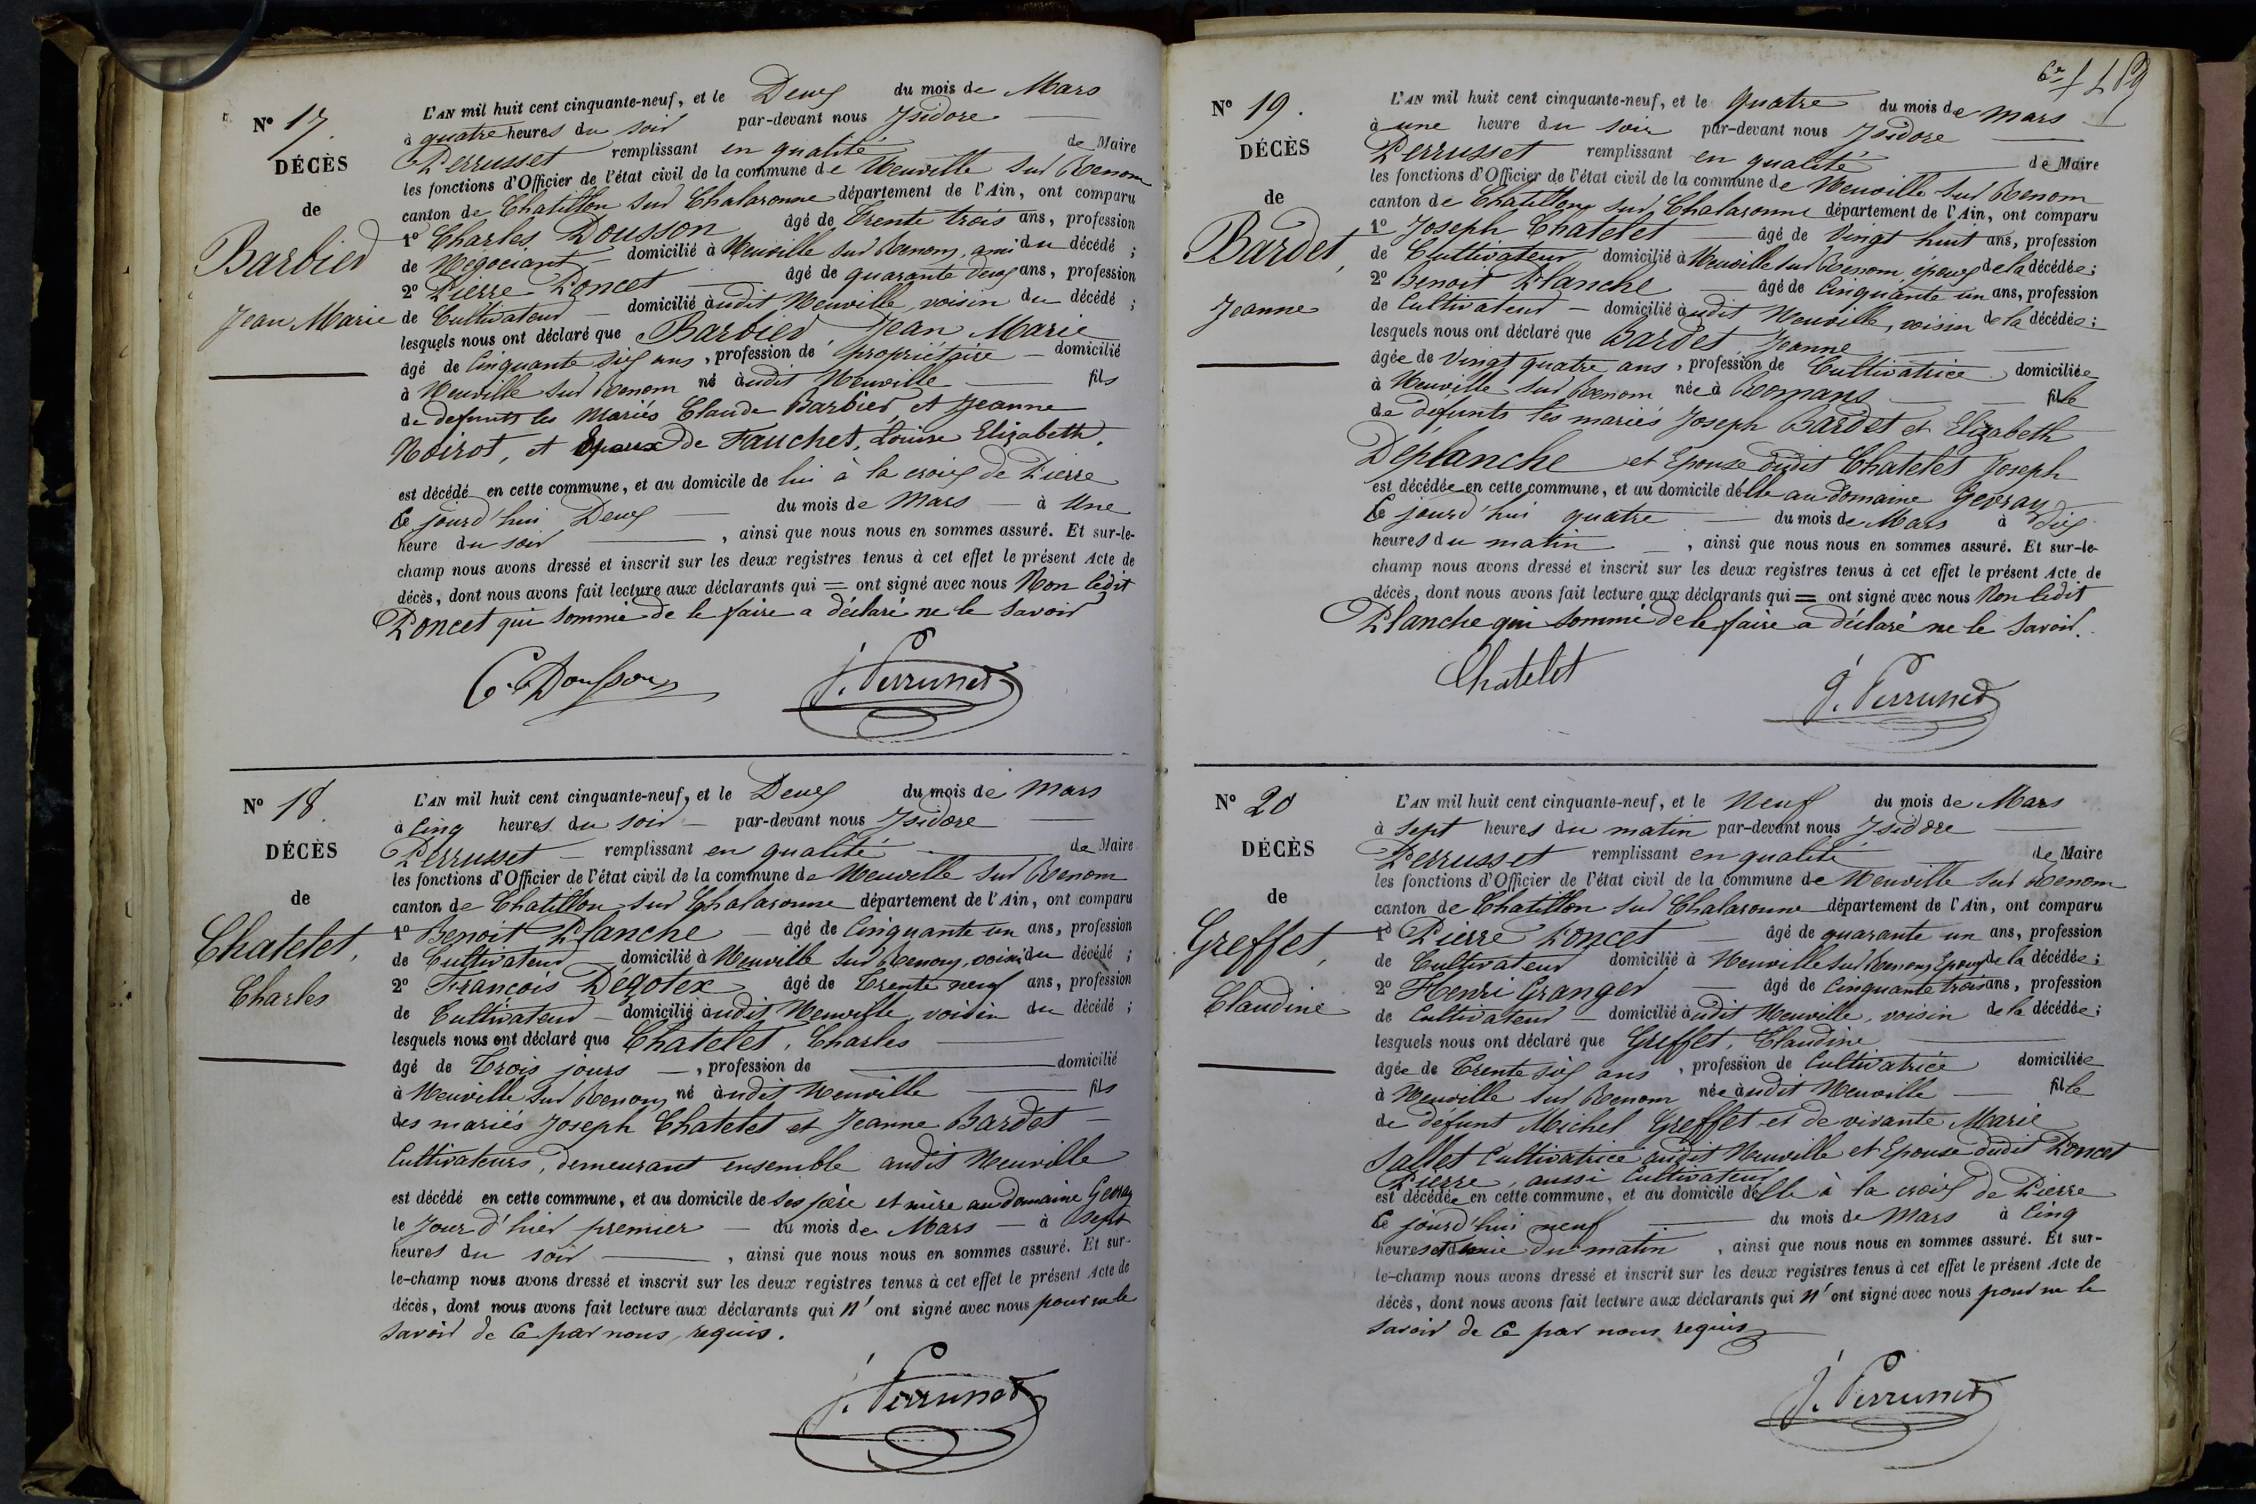 N° 17.
DÉCÈS
de
Barbier
Jean Marie
L'AN mil huit cent cinquante-neuf, et le Deux du mois de Mars
à quatre heures du soir par-devant nous Isidore
Perrusset remplissant en qualité de Maire
les fonctions d'Officier de l'état civil de la commune de Neuville sur Renom
canton de Chatillon sur Chalaronne département de l'Ain, ont comparu
1° Charles Dousson âgé de Trente trois ans, profession
de Négociant domicilié à Neuville sur Renom, ami du décédé ;
2° Pierre Poncet âgé de quarante deux ans, profession
de Cultivateur domicilié audit Neuville, voisin du décédé ;
lesquels nous ont déclaré que Barbier Jean Marie
âgé de Cinquante six ans, profession de propriétaire domicilié
à Neuville sur Renom né audit Neuville fils
de defunts les mariés Claude Barbier et Jeanne
Noirot, et Epoux de Fauchet, Louise Elizabeth.
est décédé en cette commune, et au domicile de lui à la croix de Pierre
Ce jourd'hui Deux du mois de Mars à Une
heure du soir , ainsi que nous nous en sommes assuré. Et sur-le-
champ nous avons dressé et inscrit sur les deux registres tenus à cet effet le présent Acte de
décès, dont nous avons fait lecture aux déclarants qui = ont signé avec nous Non ledit
Poncet qui sommé de le faire a déclaré ne le savoir
C. Dousson J. Perrusset
N° 18.
DÉCÈS
de
Chatelet,
Charles
L'AN mil huit cent cinquante-neuf, et le Deux du mois de Mars
à Cinq heures du soir par-devant nous Isidore
Perrusset remplissant en qualité de Maire
les fonctions d'Officier de l'état civil de la commune de Neuville sur Renom
canton de Chatillon sur Chalaronne département de l'Ain, ont comparu
1° Benoit Planche âgé de Cinquante un ans, profession
de Cultivateur domicilié à Neuville sur Renom, voisin du décédé ;
2° François Dégotex âgé de Trente neuf ans, profession
de Cultivateur domicilié audit Neuville, voisin du décédé ;
lesquels nous ont déclaré que Chatelet, Charles
âgé de Trois jours , profession de domicilié
à Neuville sur Renom né audit Neuville fils
des mariés Joseph Chatelet et Jeanne Bardet
Cultivateurs, demeurant ensemble audit Neuville
est décédé en cette commune, et au domicile de ses père et mère au domaine Gevray
le Jour d'hier premier du mois de Mars à Sept
heures du soir , ainsi que nous nous en sommes assuré. Et sur-
le-champ nous avons dressé et inscrit sur les deux registres tenus à cet effet le présent Acte de
décès, dont nous avons fait lecture aux déclarants qui n' ont signé avec nous pour ne le
savoir de ce par nous requis.
J. Perrusset
N° 19.
DÉCÈS
de
Bardet,
Jeanne
L'AN mil huit cent cinquante-neuf, et le quatre du mois de Mars
à une heure du soir par-devant nous Isidore
Perrusset remplissant en qualité de Maire
les fonctions d'Officier de l'état civil de la commune de Neuville sur Renom
canton de Chatillon sur Chalaronne département de l'Ain, ont comparu
1° Joseph Chatelet âgé de Vingt huit ans, profession
de Cultivateur domicilié à Neuville sur Renom époux de la décédée ;
2° Benoit Planche âgé de Cinquante un ans, profession
de Cultivateur domicilié audit Neuville, voisin de la décédée ;
lesquels nous ont déclaré que Bardet, Jeanne
âgée de Vingt quatre ans, profession de Cultivatrice domiciliée
à Neuville sur Renom née à Romans fille
de défunts les mariés Joseph Bardet et Elizabeth
Déplanche et Epouse dudit Chatelet Joseph
est décédée en cette commune, et au domicile d'elle au domaine Gevray
Ce jourd'hui quatre du mois de Mars à dix
heures du matin , ainsi que nous nous en sommes assuré. Et sur-le-
champ nous avons dressé et inscrit sur les deux registres tenus à cet effet le présent Acte de
décès, dont nous avons fait lecture aux déclarants qui = ont signé avec nous Non ledit
Planche qui sommé de le faire a déclaré ne le savoir.
Chatelet J. Perrusset
N° 20
DÉCÈS
de
Greffet,
Claudine
L'AN mil huit cent cinquante-neuf, et le Neuf du mois de Mars
à sept heures du matin par-devant nous Isidore
Perrusset remplissant en qualité de Maire
les fonctions d'Officier de l'état civil de la commune de Neuville sur Renom
canton de Chatillon sur Chalaronne département de l'Ain, ont comparu
1° Pierre Poncet âgé de quarante un ans, profession
de Cultivateur domicilié à Neuville sur Renom, Epoux de la décédée ;
2° Henri Granger âgé de Cinquante trois ans, profession
de Cultivateur domicilié audit Neuville, voisin de la décédée ;
lesquels nous ont déclaré que Greffet, Claudine
âgée de Trente six ans , profession de Cultivatrice domiciliée
à Neuville sur Renom née audit Neuville fille
de défunt Michel Greffet et de vivante Marie
Sallet Cultivatrice audit Neuville et Epouse dudit Poncet
Pierre, aussi Cultivateur
est décédée en cette commune, et au domicile d'elle à la croix de Pierre
Ce jourd'hui neuf du mois de Mars à Cinq
heures et demie du matin , ainsi que nous nous en sommes assuré. Et sur-
le-champ nous avons dressé et inscrit sur les deux registres tenus à cet effet le présent Acte de
décès, dont nous avons fait lecture aux déclarants qui n' ont signé avec nous pour ne le
savoir de ce par nous requis
J. Perrusset